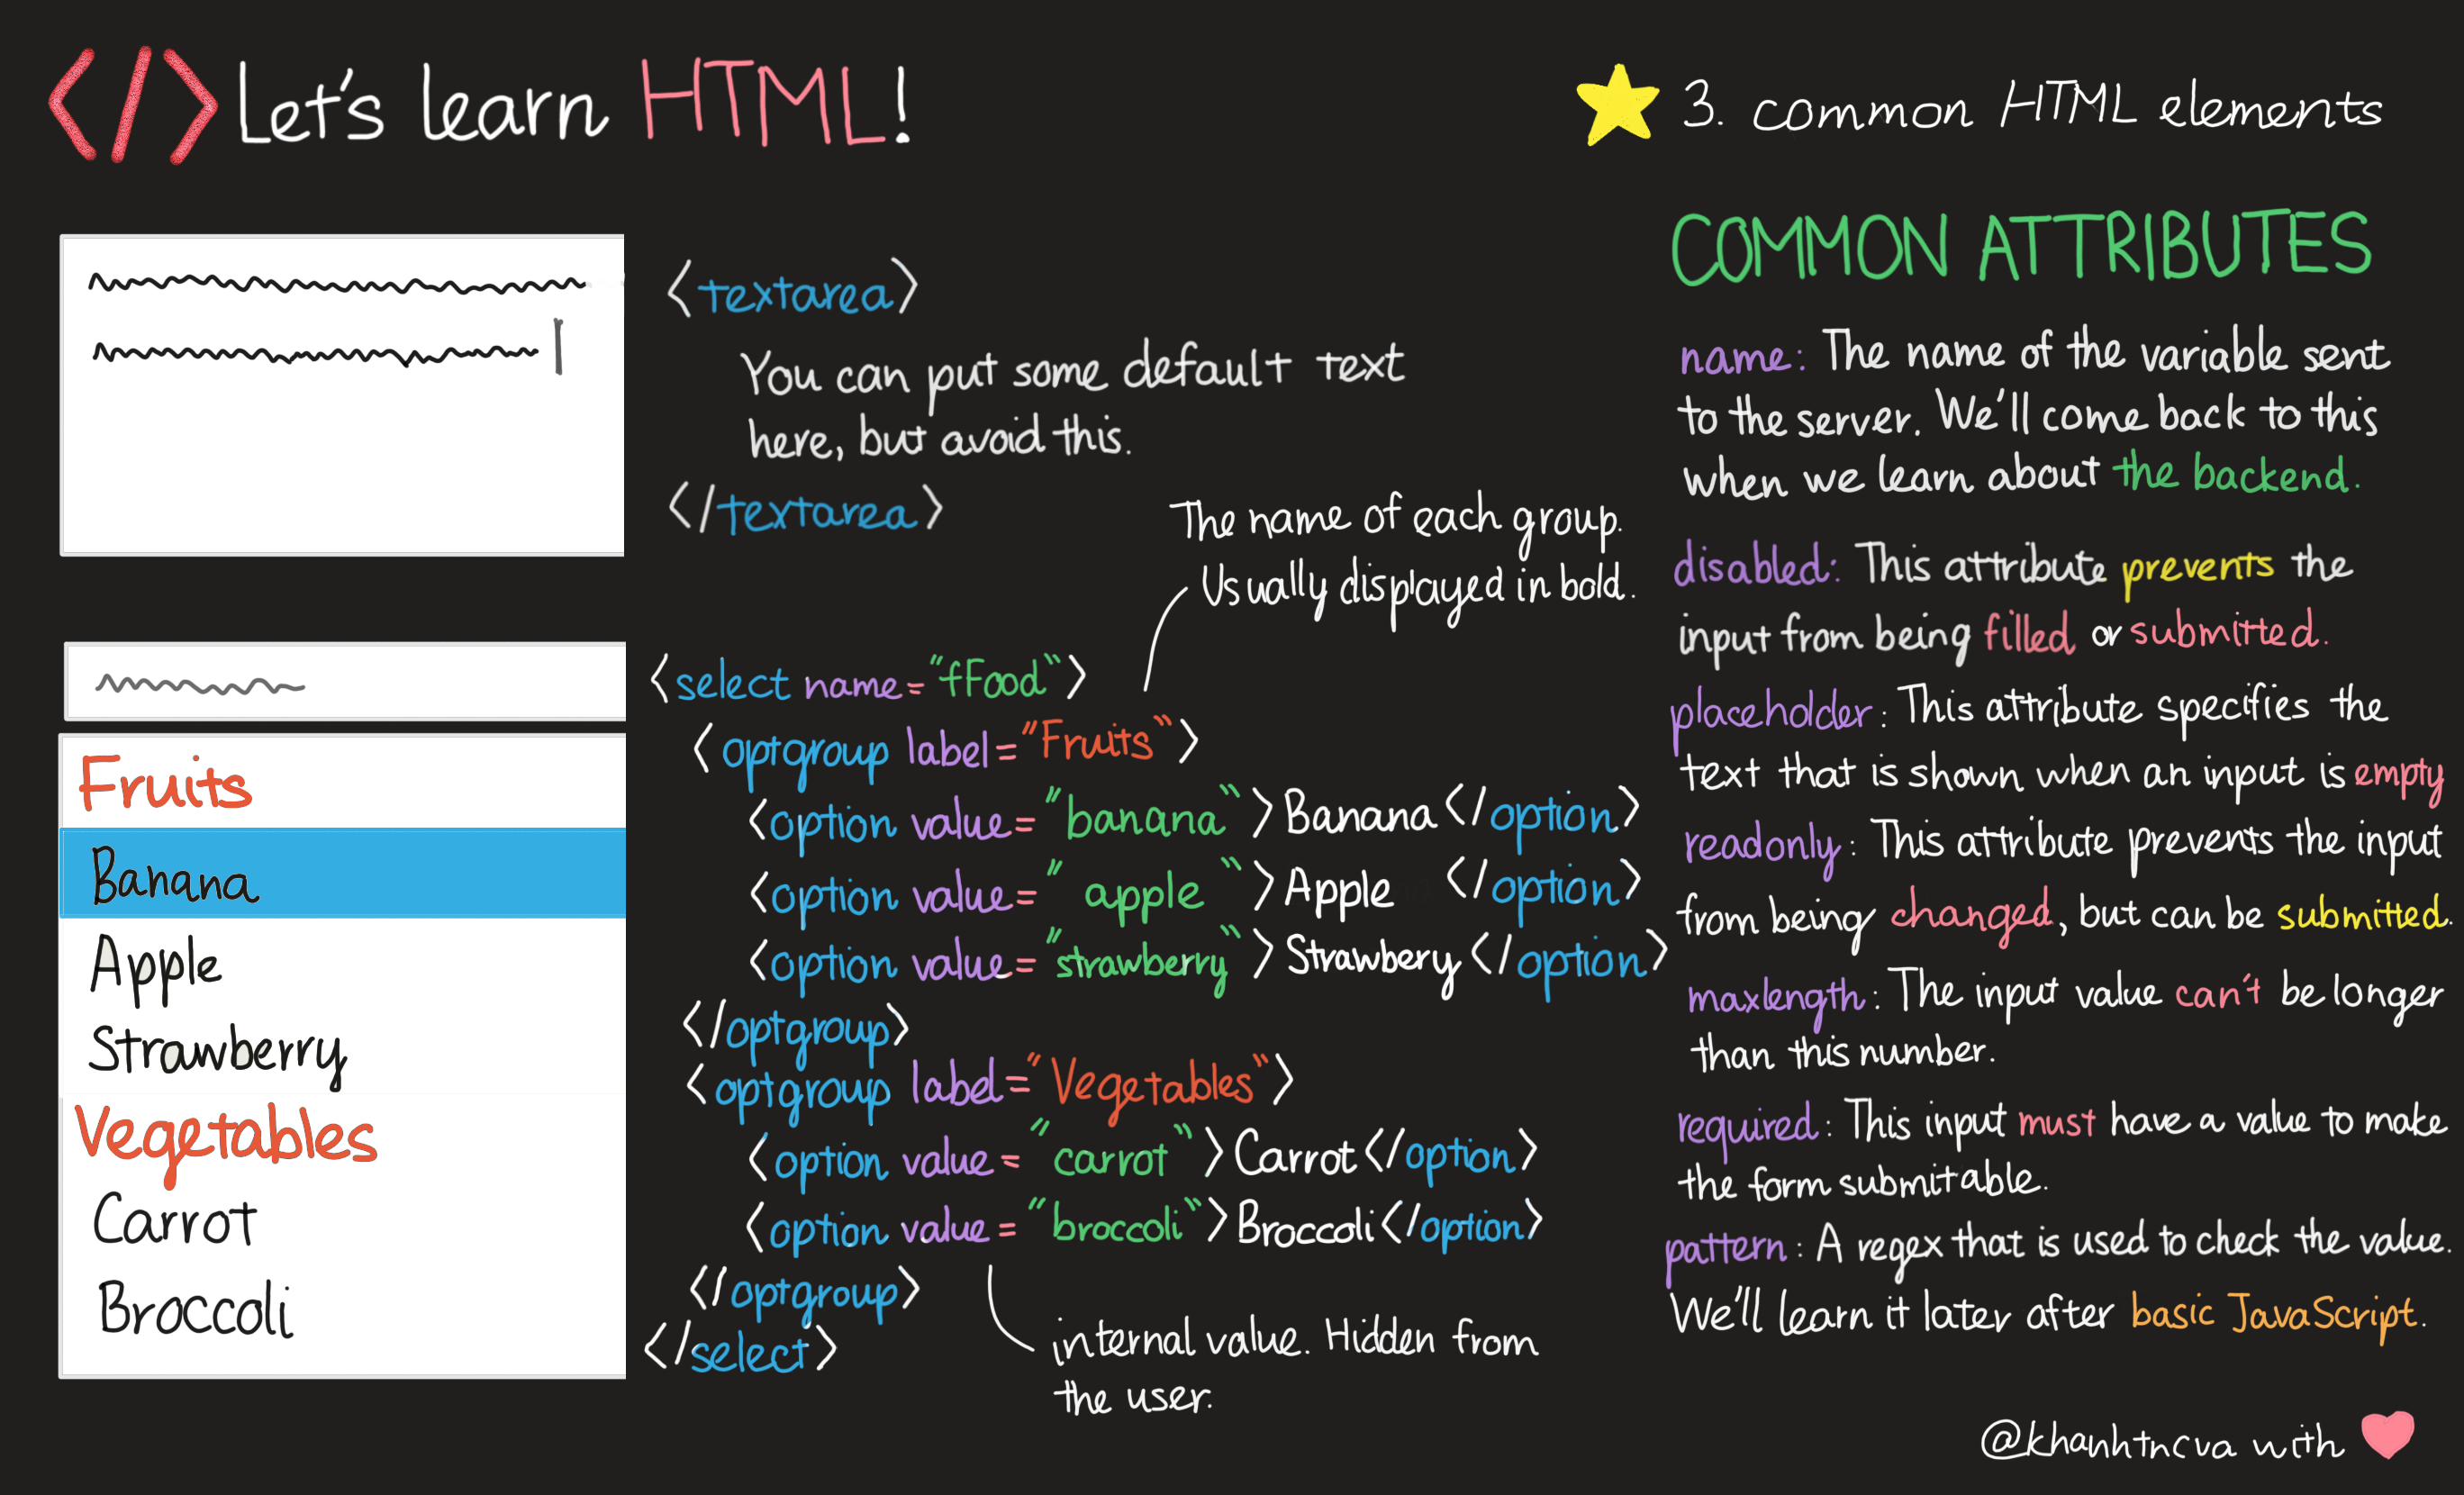 </> Let's learn HTML!
3. common HTML elements
<textarea>
You can put some default text
here, but avoid this.
</textarea>
The name of each group.
Usually displayed in bold.
Fruits
Banana
Apple
Strawberry
Vegetables
Carrot
Broccoli
<select name="fFood">
<optgroup label="Fruits">
<option value="banana">Banana</option>
<option value="apple">Apple </option>
<option value="strawberry">Strawbery</option>
</optgroup>
<optgroup label="Vegetables">
<option value="carrot">Carrot</option>
<option value="broccoli">Broccoli</option>
</optgroup>
</select>
internal value. Hidden from
the user.
COMMON ATTRIBUTES
name: The name of the variable sent
to the server. We'll come back to this
when we learn about the backend.
disabled: This attribute prevents the
input from being filled or submitted.
placeholder: This attribute specifies the
text that is shown when an input is empty
readonly: This attribute prevents the input
from being changed, but can be submitted.
maxlength: The input value can't be longer
than this number.
required: This input must have a value to make
the form submitable.
pattern: A regex that is used to check the value.
We'll learn it later after basic JavaScript.
@khanhtncva with